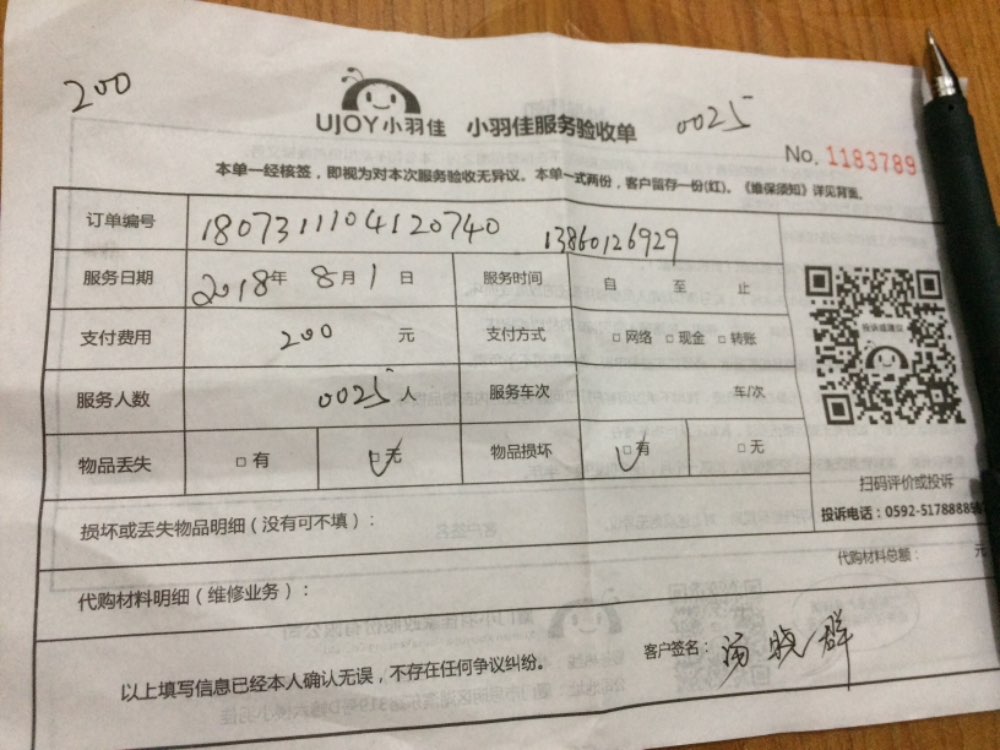 200
UJOY小羽佳 小羽佳服务验收单 0025
No. 1183789
本单一经核签，即视为对本次服务验收无异议。本单一式两份，客户留存一份(红)。《维保须知》详见背面。
订单编号 1807311104120740 13860126929
服务日期 2018年 8月 1日 服务时间 自 至 止
支付费用 200 元 支付方式 □网络 □现金 □转账
投诉或建议
服务人数 0025人 服务车次 车/次
物品丢失 □有 □无 物品损坏 □有 □无
扫码评价或投诉
投诉电话：0592-5178888
损坏或丢失物品明细（没有可不填）：
代购材料总额： 元
代购材料明细（维修业务）：
客户签名：汤晓群
以上填写信息已经本人确认无误，不存在任何争议纠纷。